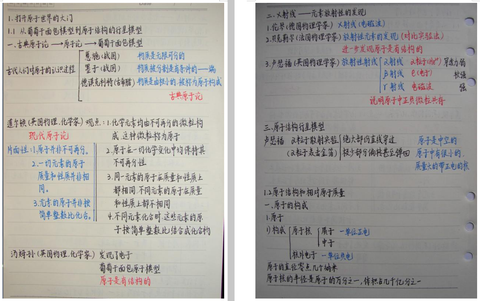 1. 打开原子世界的大门
1.1 从葡萄干面包模型到原子结构的行星模型
一. 古典原子论→原子论→葡萄干面包模型
古代人们对原子的认识过程
惠施(战国) 物质是无限可分的
墨子(战国) 物质被分割是有条件的一端
德谟克利特(古希腊) 物质是由极小的 被称为原子构成
古典原子论
道尔顿(英国物理、化学家) 观点:
近代原子论
1. 化学元素均由不可再分的微粒构成 这种微粒称为原子
2. 原子在一切化学变化中均保持其不可再分性
3. 同一元素的原子在质量和性质上都相同 不同元素的原子在质量和性质上都不相同
4. 不同元素化合时 这些元素的原子按简单整数比结合成化合物
片面性: 1. 原子并非不可再分
2. 一切元素的原子质量和性质并非相同
3. 元素的原子并非按简单整数比化合。
汤姆孙(英国物理、化学家)
发现了电子
葡萄干面包原子模型
原子是有结构的
二. X射线——元素放射性的发现
1. 伦琴(德国物理学家) X射线(电磁波)
2. 贝克勒尔(法国物理学家) 放射性元素的发现
进一步发现原子是有结构的
3. 卢瑟福(英国物理学家) 放射性射线
α射线 α粒子(He²⁺) 穿透力弱
β射线 e(电子) 较强
γ射线 电磁波 强
说明原子中正负电微粒共存
三. 原子结构行星模型
卢瑟福 α粒子散射实验
(α粒子轰击金箔)
绝大部分直线穿过 原子是中空的
极少部分偏转甚至弹回 原子中有很小的、质量大的带正电的核
1.2 原子结构和相对原子质量
一. 原子的构成
1. 原子
1) 构成
原子核 质子 一单位正电
中子
核外电子 一单位负电
原子的直径零点几个纳米
原子核的半径是原子的万分之一, 体积占几千亿分之一